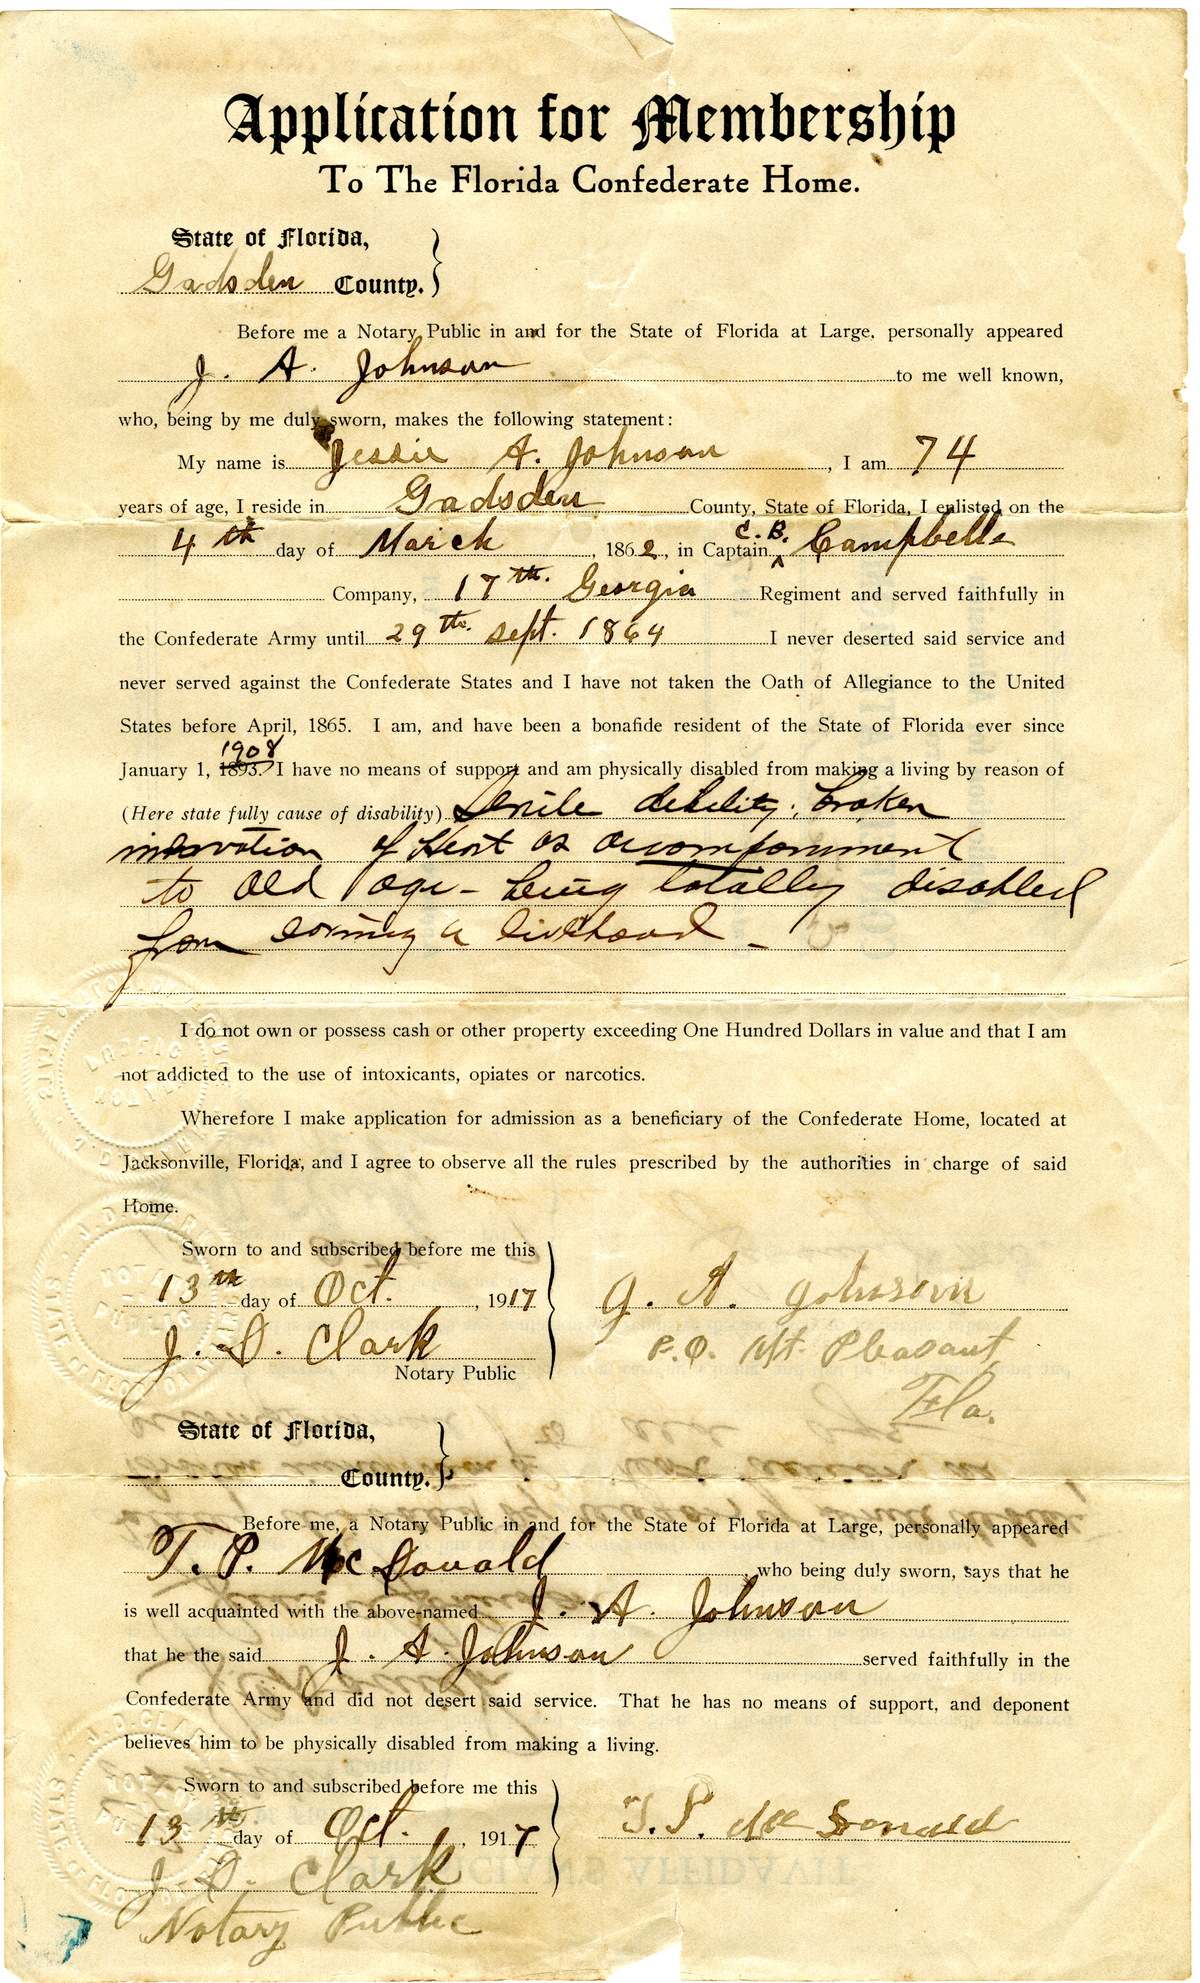 Application for Membership
To The Florida Confederate Home.
State of Florida,
Gadsden County.
Before me a Notary Public in and for the State of Florida at Large, personally appeared
J. A. Johnson to me well known,
who, being by me duly sworn, makes the following statement:
My name is Jessie A. Johnson, I am 74
years of age, I reside in Gadsden County, State of Florida, I enlisted on the
4th day of March, 1862, in Captain C. B. Campbells
Company, 17th. Georgia Regiment and served faithfully in
the Confederate Army until 29th. sept. 1864 I never deserted said service and
never served against the Confederate States and I have not taken the Oath of Allegiance to the United
States before April, 1865. I am, and have been a bonafide resident of the State of Florida ever since
January 1, 1893. 1908 I have no means of support and am physically disabled from making a living by reason of
(Here state fully cause of disability) Senile debility; broken
of Heart as
to old age - being totally disabled
from earning a livelihood -
I do not own or possess cash or other property exceeding One Hundred Dollars in value and that I am
not addicted to the use of intoxicants, opiates or narcotics.
Wherefore I make application for admission as a beneficiary of the Confederate Home, located at
Jacksonville, Florida, and I agree to observe all the rules prescribed by the authorities in charge of said
Home.
Sworn to and subscribed before me this
13th day of Oct., 1917
J. D. Clark
Notary Public
J. A. Johnson
P.O. Mt. Pleasant,
Fla.
State of Florida,
County.
Before me, a Notary Public in and for the State of Florida at Large, personally appeared
T. P. McDonald who being duly sworn, says that he
is well acquainted with the above-named J. A. Johnson
that he the said J. A. Johnson served faithfully in the
Confederate Army and did not desert said service. That he has no means of support, and deponent
believes him to be physically disabled from making a living.
Sworn to and subscribed before me this
13th day of Oct., 1917
J. D. Clark
Notary Public
T. P. McDonald